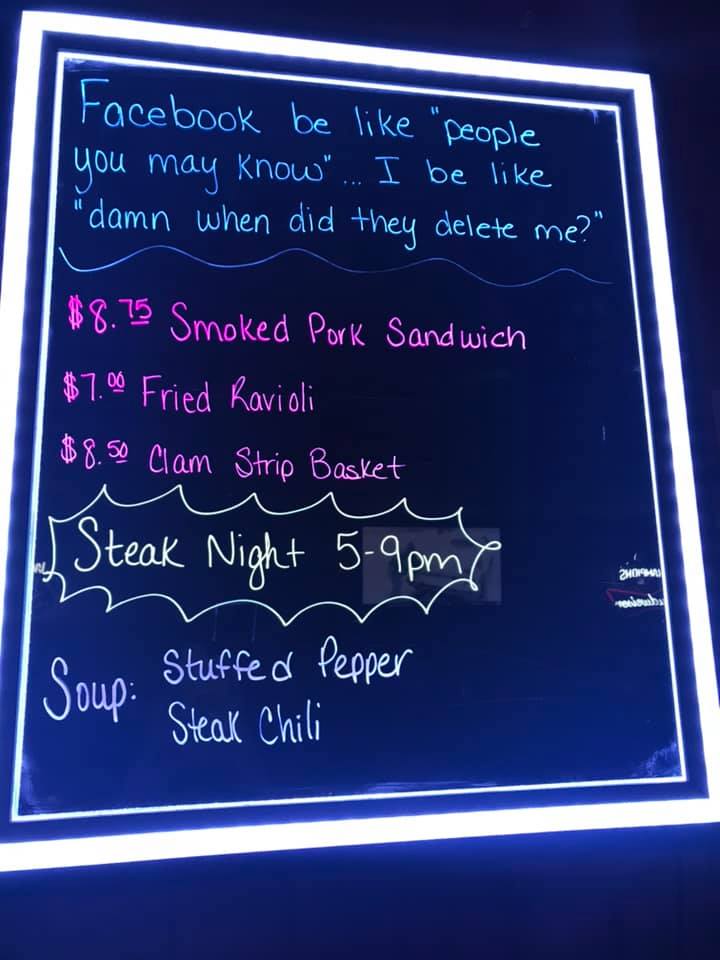 Facebook be like "people
you may know"... I be like
"damn when did they delete me?"
$8.75 Smoked Pork Sandwich
$7.00 Fried Ravioli
$8.50 Clam Strip Basket
Steak Night 5-9pm
Soup: Stuffed Pepper
Steak Chili